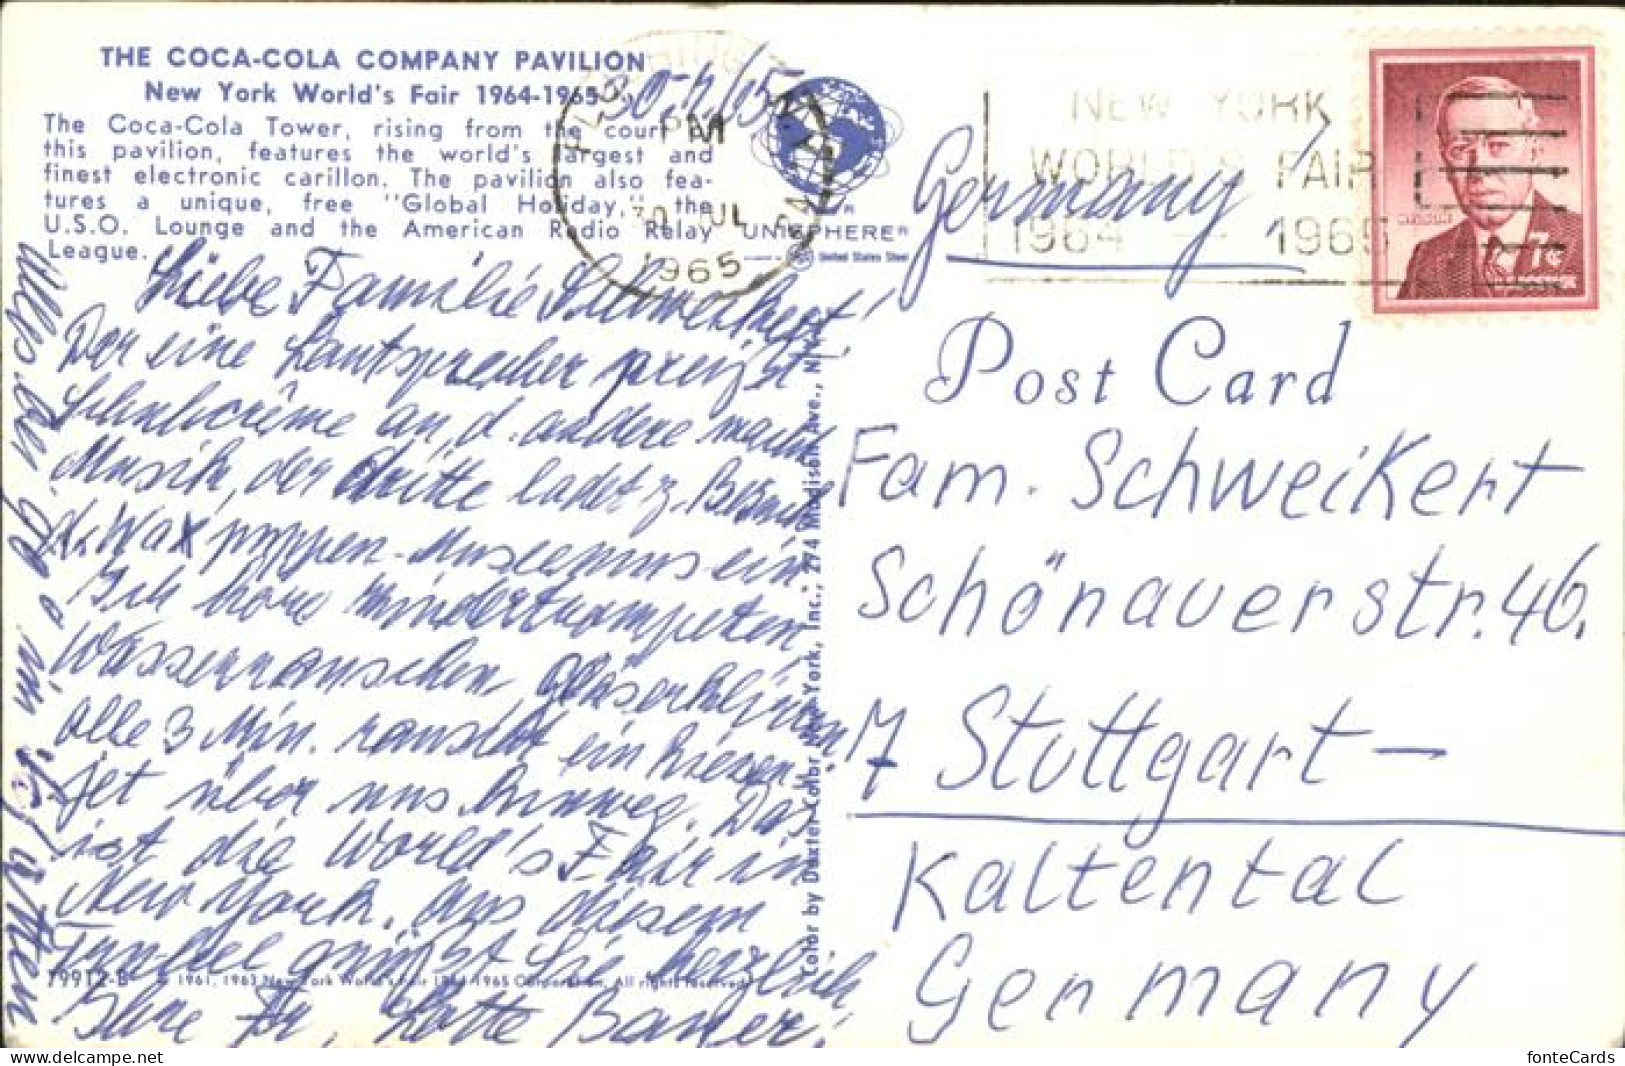 THE COCA-COLA COMPANY PAVILION
New York World's Fair 1964-1965
The Coca-Cola Tower, rising from the court of
this pavilion, features the world's largest and
finest electronic carillon. The pavilion also fea-
tures a unique, free "Global Holiday," the
U.S.O. Lounge and the American Radio Relay
League.
30.7.65
PM
30 JUL
1965
UNISPHERE®
United States Steel
NEW YORK
WORLD'S FAIR
1964 — 1965
7¢
Germany
Post Card
Liebe Familie Schweikert!
Der eine Lautsprecher preist
Schuhcrême an, d. andere macht
Musik, der dritte ladet z. Besuch
d. Wax puppen-Museums ein
Ich höre Kindertrompeten
Wasserrauschen, Gläserklirren
alle 3 Min. rauscht ein Riesen-
jet über uns hinweg. Das
ist die World's Fair in
New York. Aus diesem
Trubel grüßt Sie herzlich
Ihre Lotte Bauer!
Fam. Schweikert
Schönauerstr. 46,
7 Stuttgart-
Kaltental
Germany
Color by Dexter Color New York, Inc., 274 Madison Ave., N.Y.
79912-B © 1961, 1963 New York World's Fair 1964-1965 Corporation. All rights reserved
fonteCards